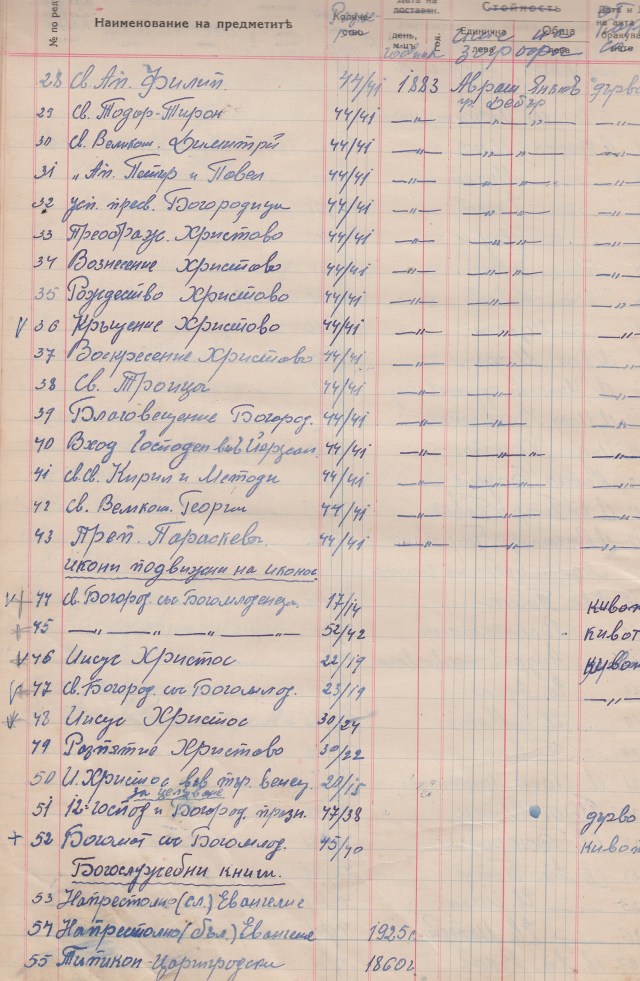 № по ред Наименование на предметитѣ Стойность
день, м-цъ Единична лева Обща
28 Св. Ап. Филип. 44/41 1883 Аврам дърво
29 Св. Тодор-Тирон 44/41 —"— —"—"— —"—
30 Св. Великом. Димитрий 44/41 —"— —"—"— —"—
31 „ Ап. Петър и Павел 44/41 —"— —"—"— —"—
32 усп. пресв. Богородици 44/41 —"— —"—"— —"—
33 Преображ. Христово 44/41 —"— —"—"— —"—
34 Вознесение Христово 44/41 —"— —"—"— —"—
35 Рождество Христово 44/41 —"— —"—"— —"—
36 Кръщение Христово 44/41 —"— —"—"— —"—
37 Воскресение Христово 44/41 —"— —"—"— —"—
38 Св. Троица 44/41 —"— —"— —"—
39 Благовещение Богород. 44/41 —"— —"—"— —"—
40 Вход Господен във Йерусал. 44/41 —"— —"—"— —"—
41 св.св. Кирил и Методи 44/41 —"— —"—"— —"—
42 Св. Великом. Георги 44/41 —"— —"—"— —"—
43 Преп. Параскева 44/41 —"— —"—"— —"—
икони подвижни на иконос.
44 Св. Богород. със Богомладенеца 17/14 кивот
45 —"—"—"—"— 52/42 кивот
46 Иисус Христос 22/19 кивот
47 Св. Богород. със Богомлад. 23/19 —"—
48 Иисус Христос 30/24
49 Разпятие Христово 30/22
50 И. Христос във тър. венец 20/15
за целуване
51 12-господ и Богород. празн. 47/38 дърво
52 Богомат със Богомлад. 45/40 кивот
Богослужебни книги.
53 Напрестолно (сл.) Евангелие
54 Напрестолно (бъл.) Евангелие 1925г.
55 Типикон-Цариградски 1860г